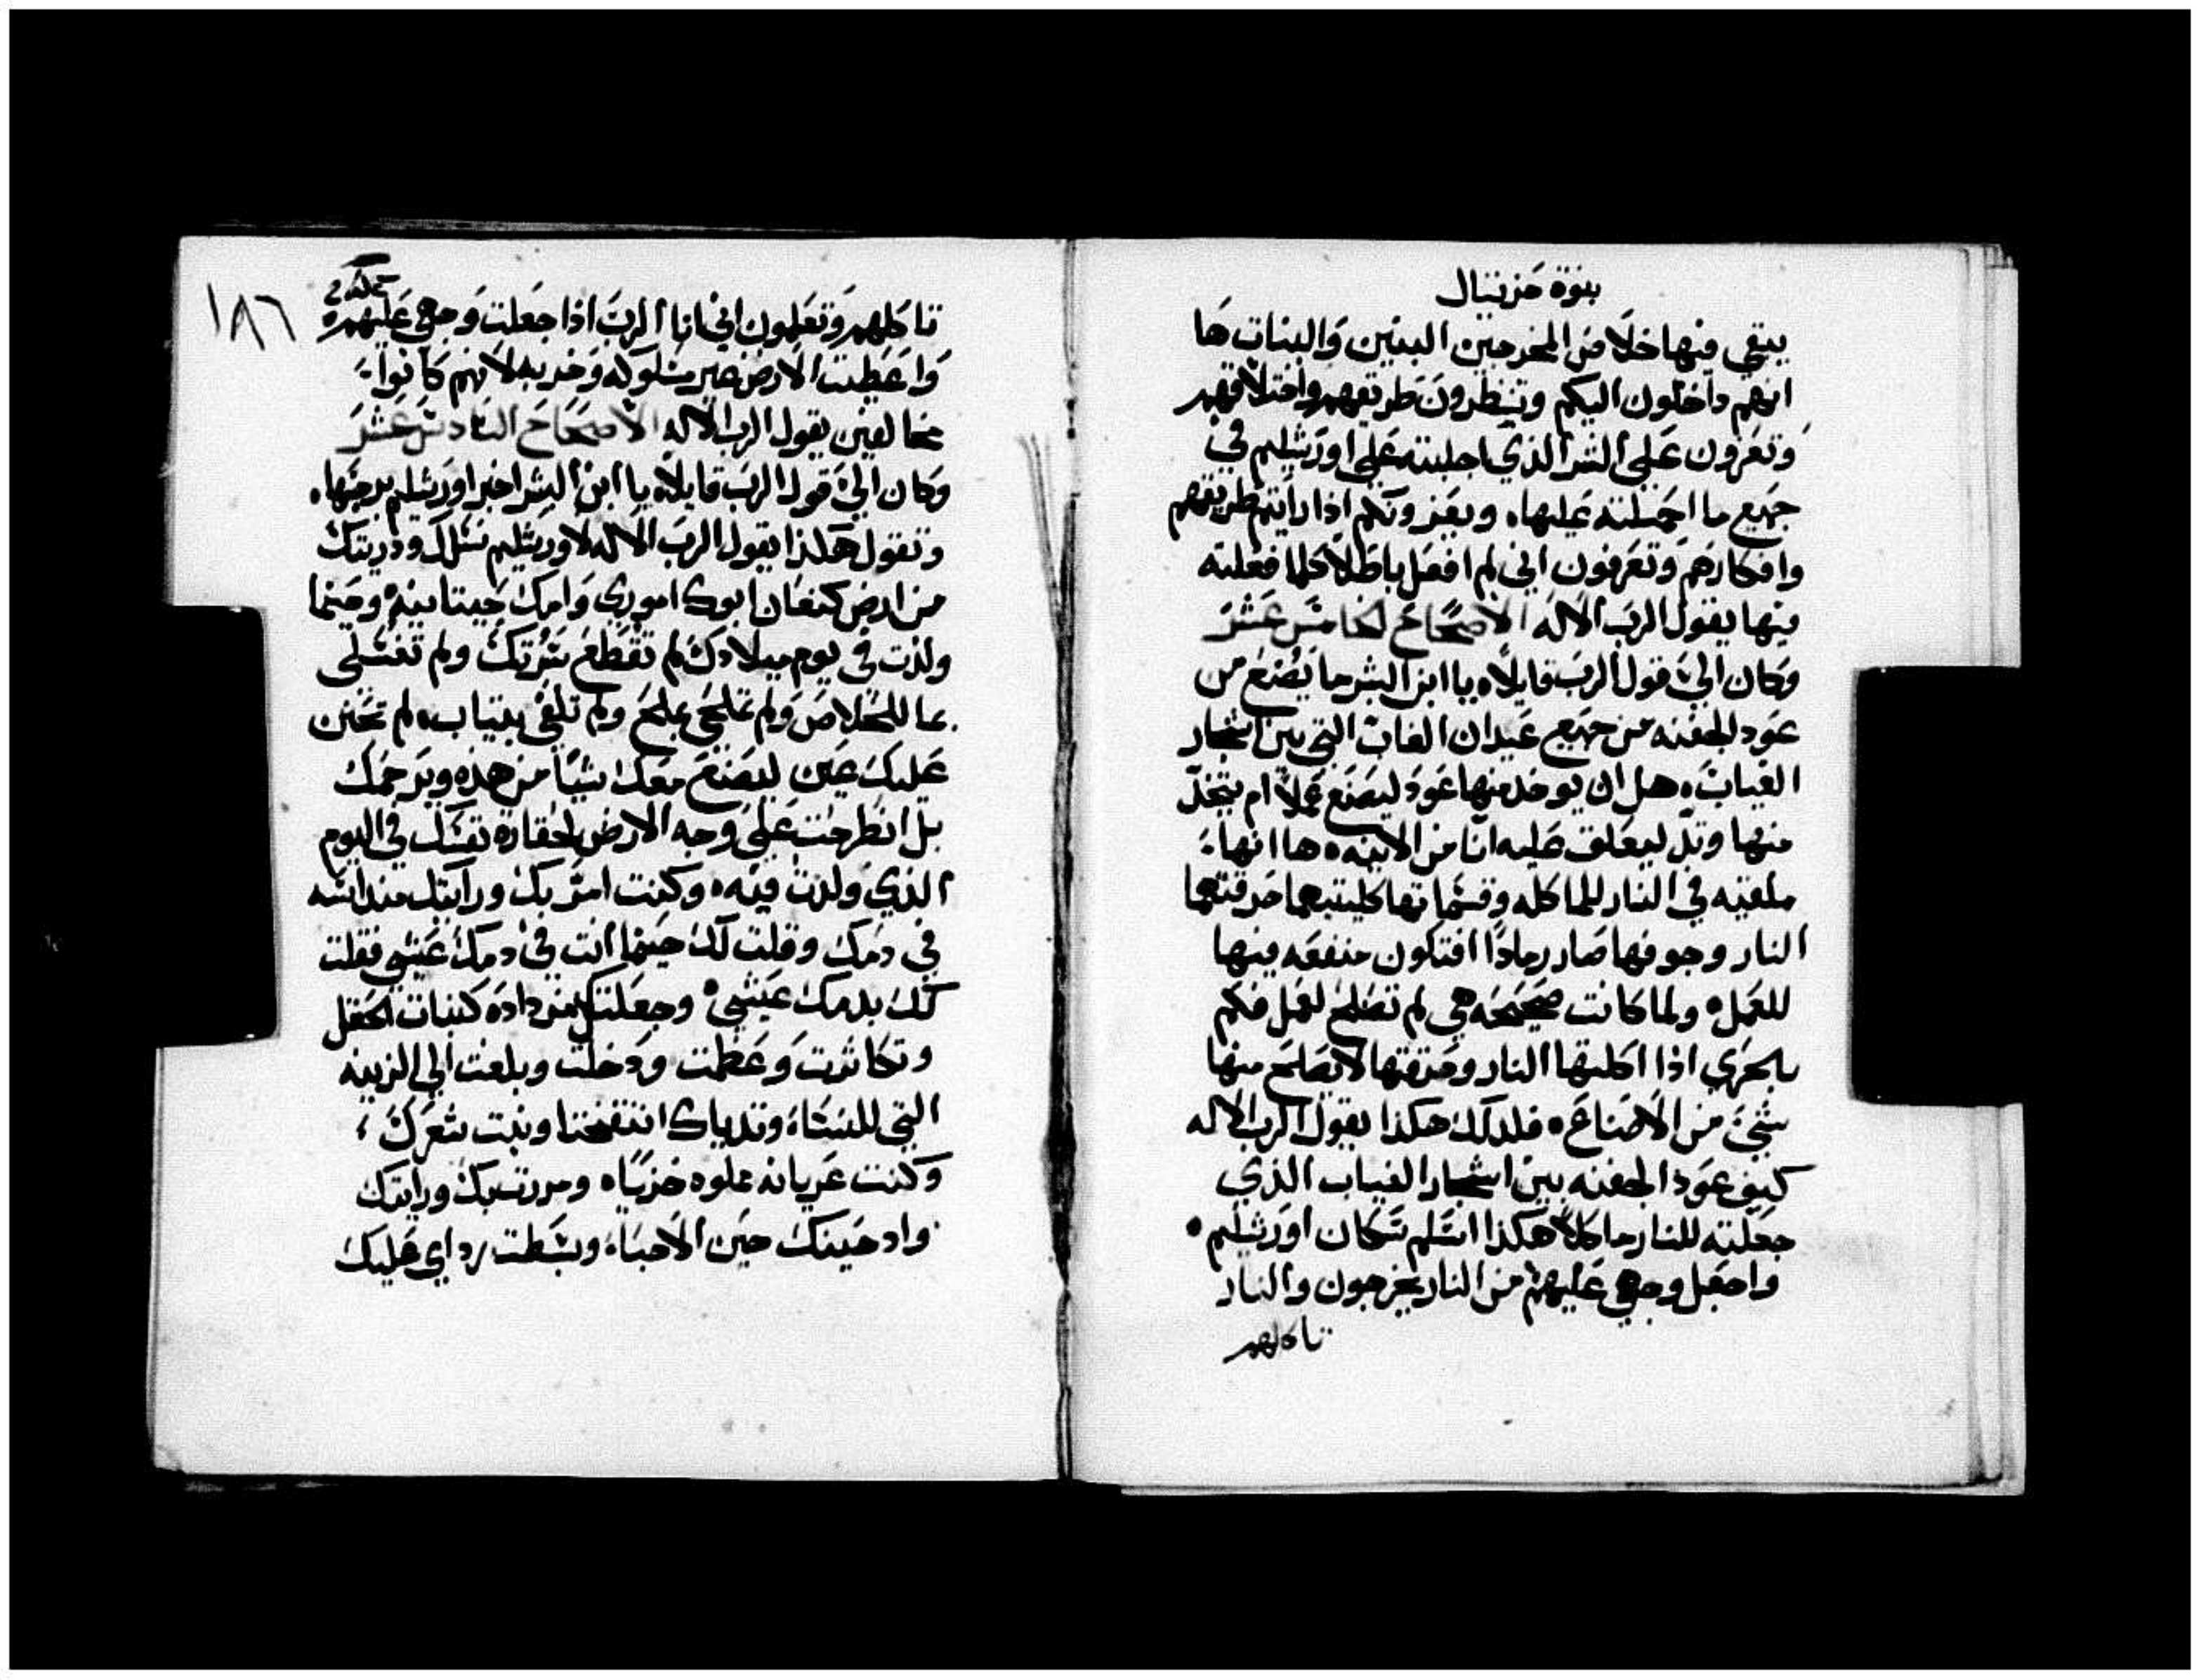 نبوة حزقيال
يبقي فيها خلاص المخرجين البنين والبنات ها
انهم داخلون اليكم وتنظرون طريقهم واختلاقهم
وتعزون علي الشر الذي اجلبته علي اورشليم في
جميع ما اجملته عليها، ويعزونكم اذا رايتم طريقهم
وافكارهم وتعرفون اني لم افعل باطلا كلما فعلته
فيها يقول الرب الاله الاصحاح الخامس عشر
وكان الي قول الرب قايلا، يا ابن البشر ما يصنع من
عود الجفنه من جميع عيدان الغاب التي بين اشجار
الغياب، هل ان يوخد منها عود ليصنع عملا ام يتخد
منها وتد ليعلق عليه انا من الانيه، ها انها
ملقيه في النار للماكله وقسماتها كليتيهما حرقتهما
النار وجوفها صار رمادا افتكون منفعه فيها
للعمل، ولما كانت صحيحه هي لم تصلح لعمل فكم
بالحري اذا اكلتها النار وحرقتها لا يصلح منها
شي من الاصناع، فلدلك هكذا يقول الرب الاله
كيف عود الجفنه بين اشجار الغياب الذي
جعلته للنار ماكلا هكذا اسلم سكان اورشليم،
واجعل وجهي عليهم من النار يخرجون والنار
تاكلهم
١٨٦
تاكلهم وتعلمون اني انا الرب اذا جعلت وجهي عليهم،
واعطيت الارض غير مسلوكه وخربه لانهم كانوا
مخالفين يقول الرب الاله الاصحاح السادس عشر
وكان الي قول الرب قايلا، يا ابن البشر اخبر اورشليم برجسها،
وتقول هكذا يقول الرب الاله لاورشليم نسلك ودريتك
من ارض كنعان ابوك اموري وامك حيتانيه، وحينما
ولدت في يوم ميلادك لم تقطع سرتك ولم تغتسلي
بما للخلاص ولم تملحي بملح ولم تلفي بتياب، لم تحنن
عليك عين ليصنع معك شيا من هذه ويرحمك
بل انطرحت علي وجه الارض لحقارة نفسك في اليوم
الذي ولدت فيه، وكنت امر بك ورايتك منداسه
في دمك وقلت لك حينما انت في دمك عيشي فقلت
لك بدمك عيشي، وجعلتك مزداده كنبات الحقل
وتكاثرت وعظمت ودخلت وبلغت الي الزينه
التي للنساء وتدياك انتفختا ونبت شعرك
وكنت عريانه مملوه خزيا، ومررت بك ورايتك
وادحينك حين الاحباء وبسطت رداي عليك